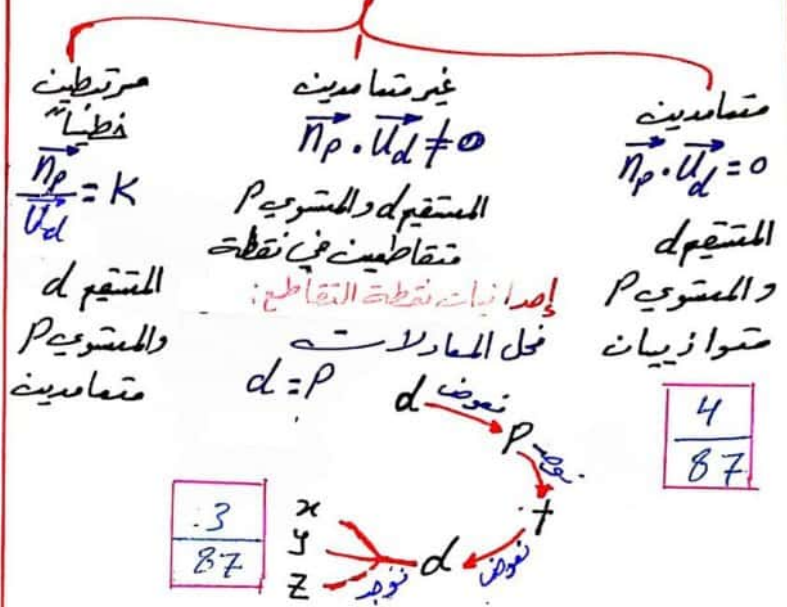 متعامدين
n_p . u_d = 0
المستقيم d
والمستوي P
متوازيان
4
87
غير متعامدين
n_p . u_d ≠ 0
المستقيم d والمستوي P
متقاطعين في نقطة
إحداثيات نقطة التقاطع:
نحل المعادلات
d = P
d نعوض P
نعوض
t
نعوض d نوجد
x
y
z
مرتبطين
خطياً
n_p / u_d = K
المستقيم d
والمستوي P
متعامدين
3
87